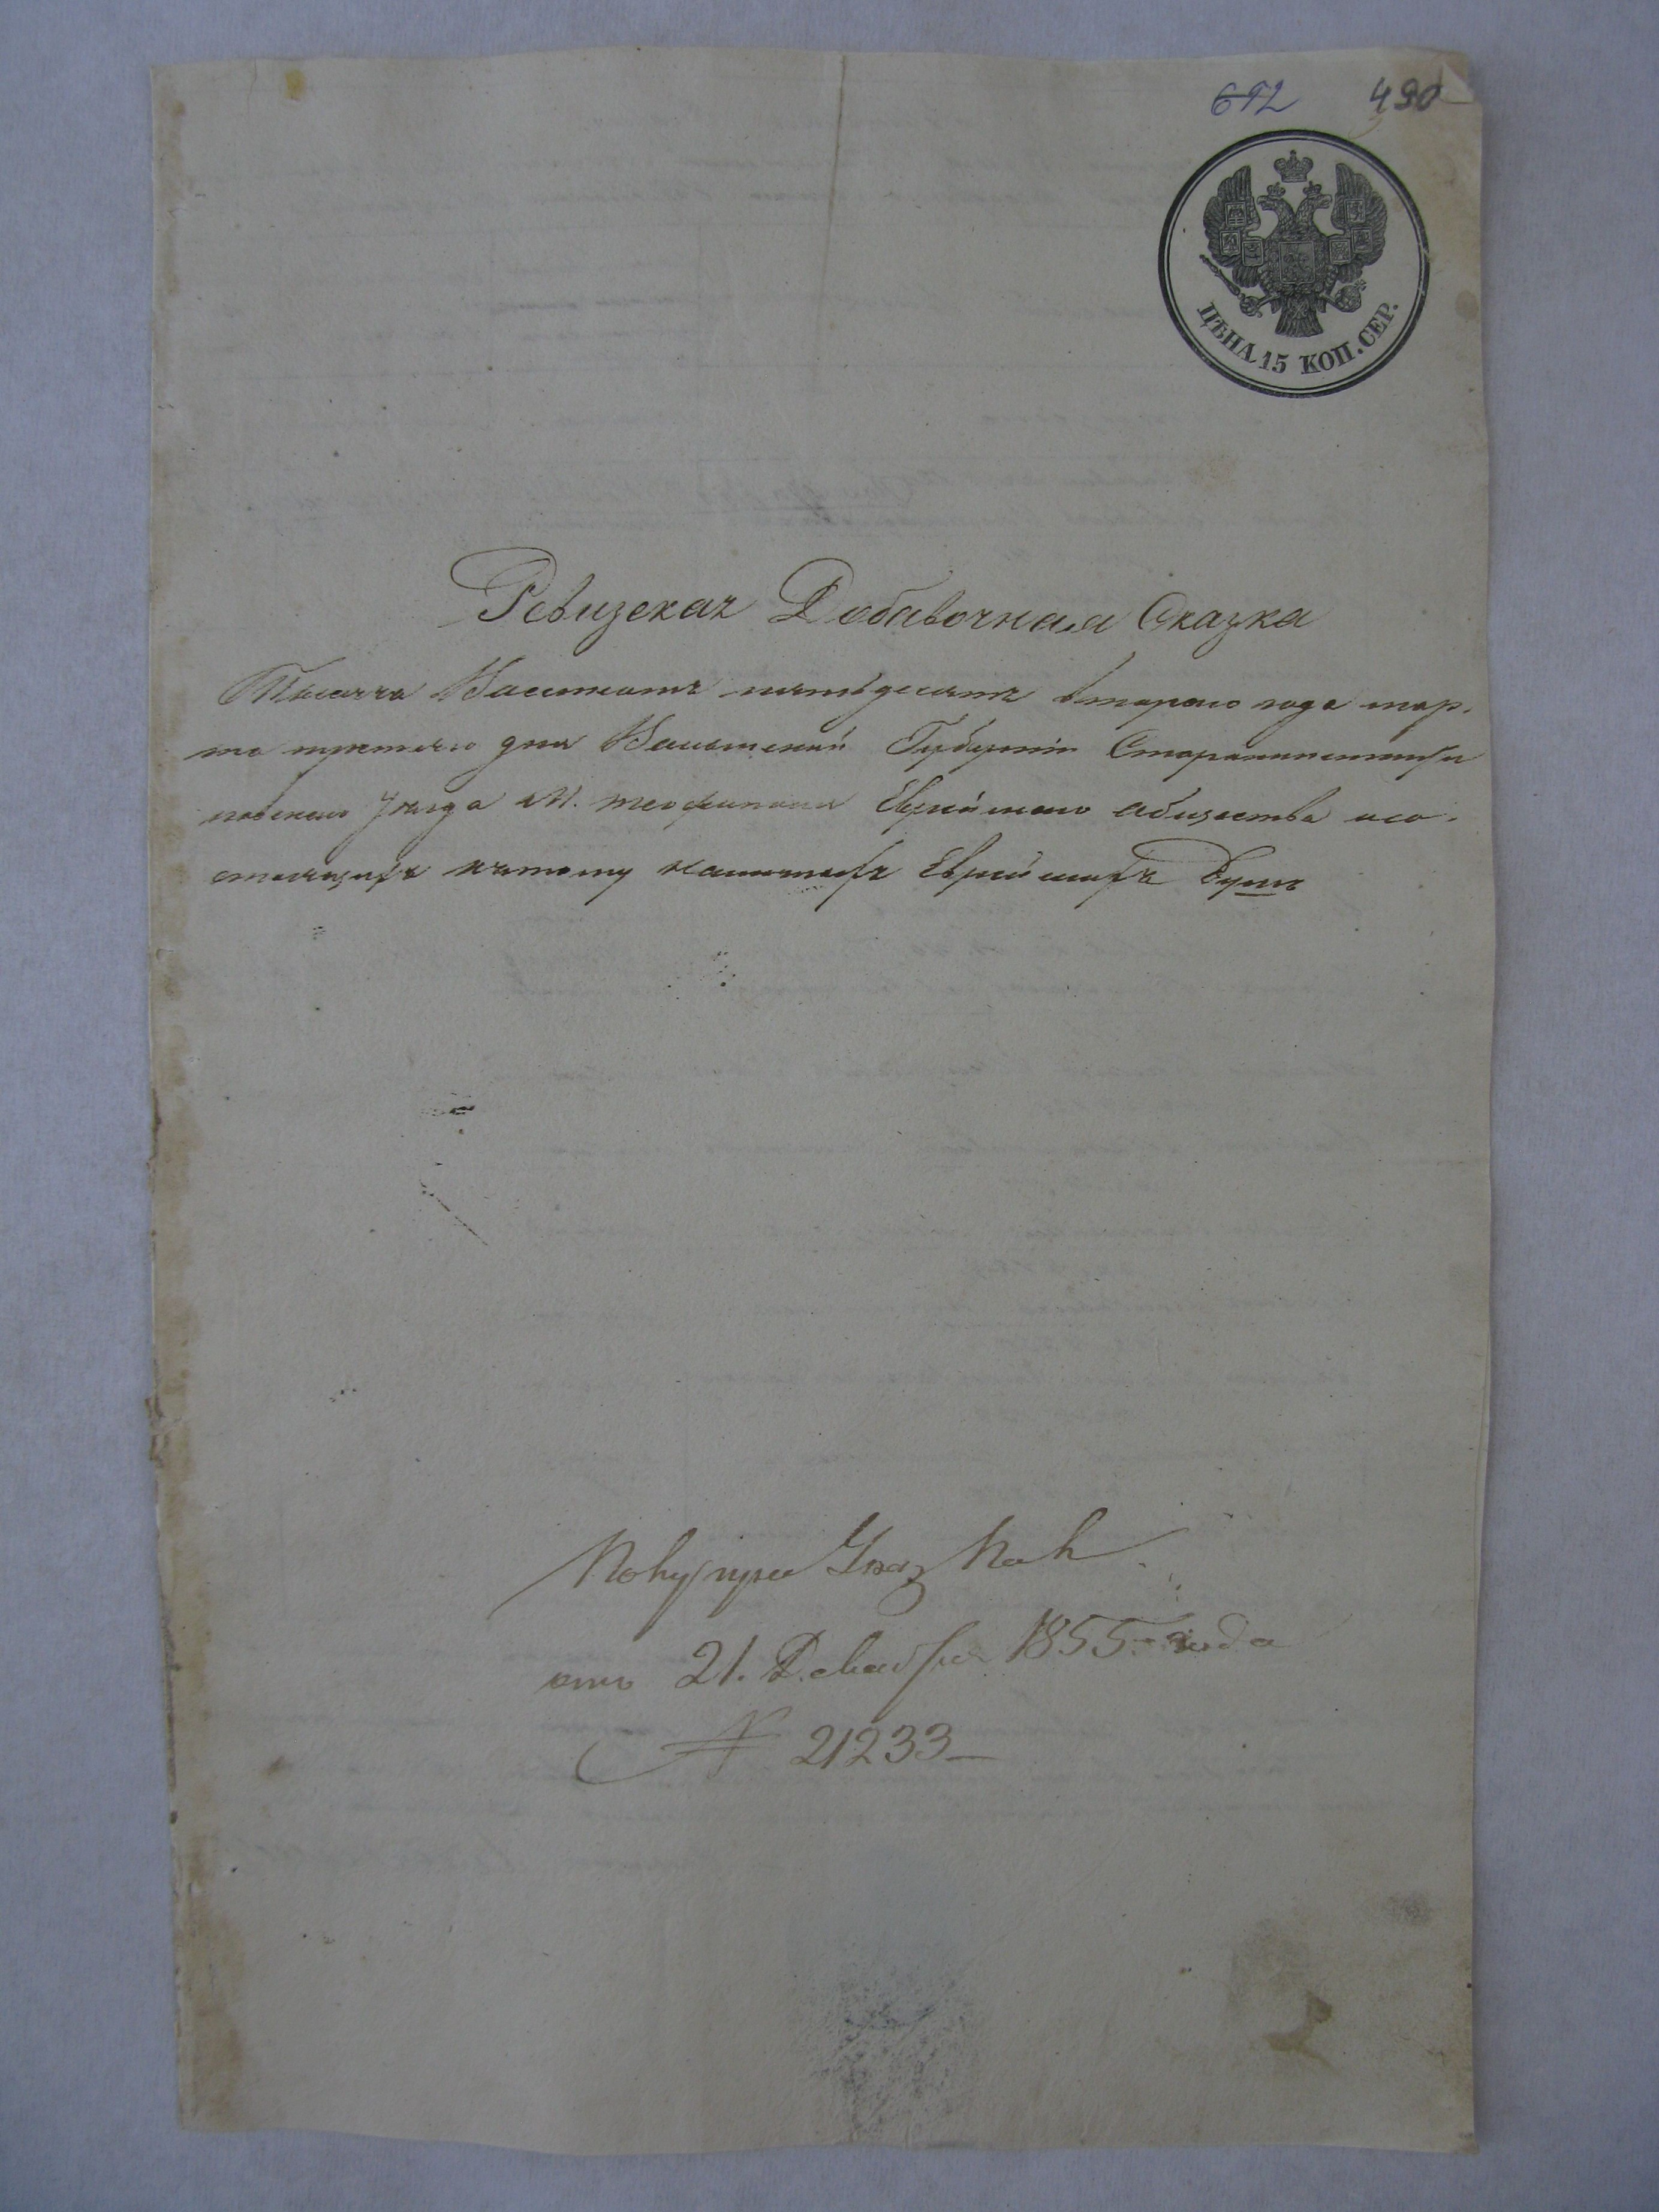 612 490
ЦѢНА 15 КОП. СЕР.
Ревизская Добавочная Сказка
Тысяча Восемсотъ пятьдесятъ втораго года мар-
та третьяго дня Волынской Губерніи Староконстантин
повскаго Уезда М. Теофиполя Еврейскаго общества о со-
стоящихъ къ тому Еврейскихъ Душъ
По Указу
отъ 21. Декабря 1855 года
№ 21233